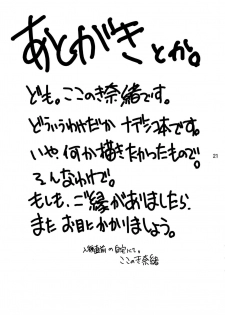 あとがきとか。
ども。ここのき奈緒です。
どういうわけだか ナデシコ本です。
いや 何か描きたかったもので。
そんなわけで。
もしも、ご縁がありましたら、
また お目にかかりましょう。
の自宅にて。
ここのき奈緒
21